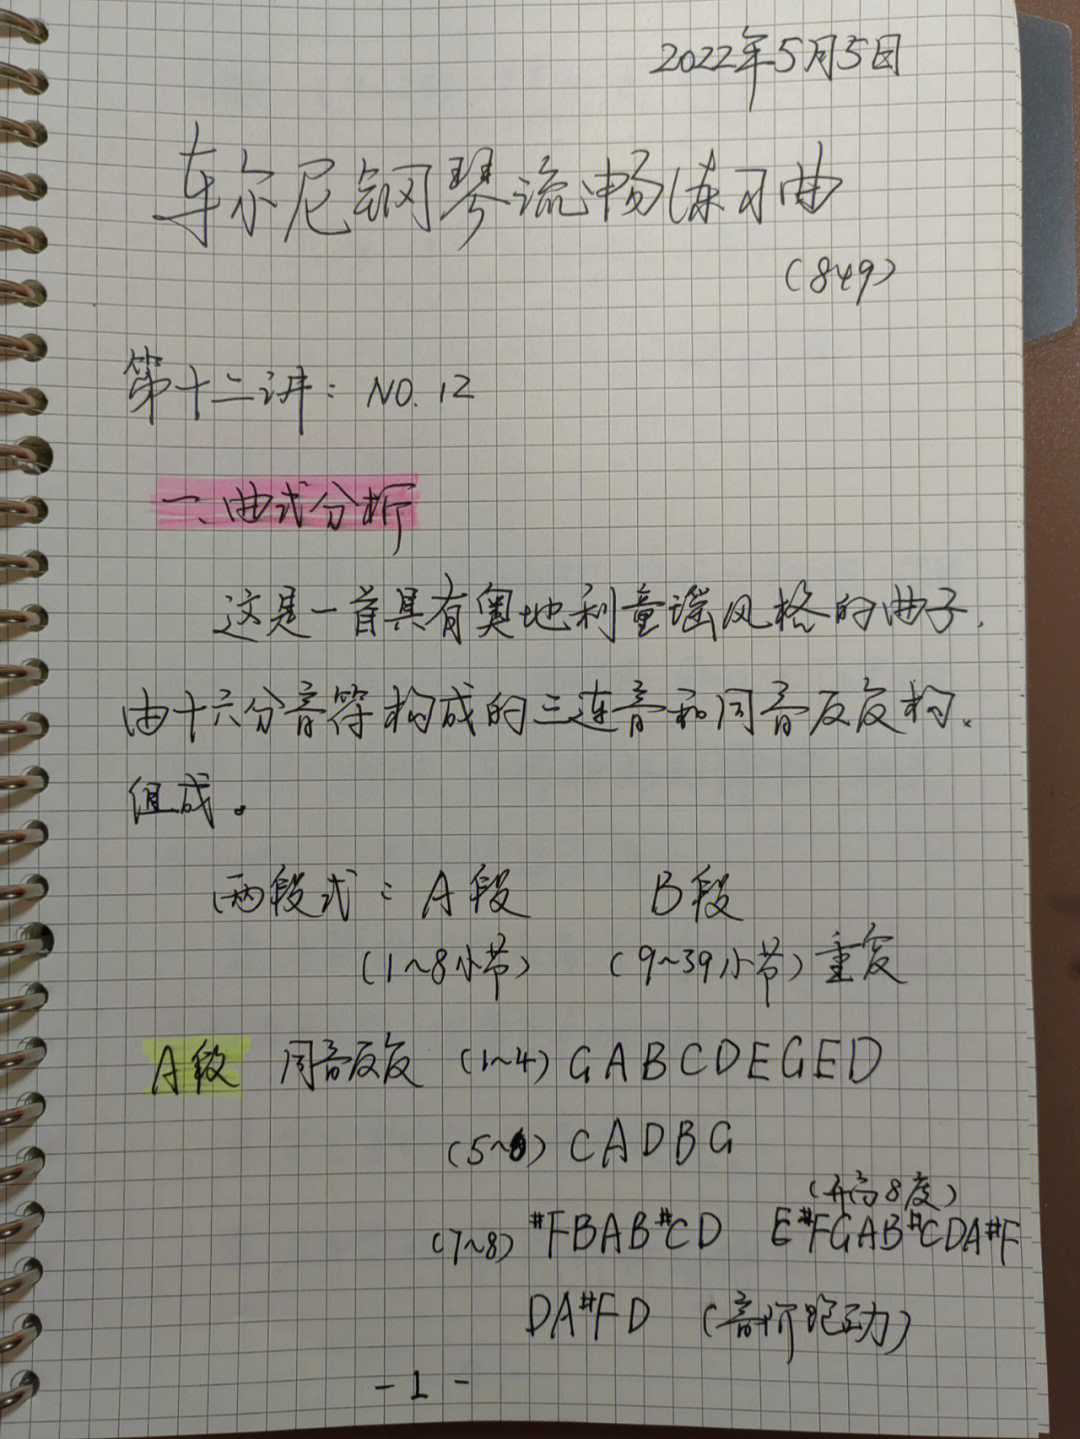 2022年5月5日
车尔尼钢琴流畅练习曲
(849)
第十二讲: NO.12
一、曲式分析
这是一首具有奥地利童谣风格的曲子.
由十六分音符构成的三连音和同音反复构.
组成。
两段式: A段 B段
(1~8小节) (9~39小节)重复
A段 同音反复 (1~4) GABCDEGED
(5~6) CADBG
(升高8度)
(7~8) #FBAB#CD E#FGAB#CDA#F
DA#FD (音阶跑动)
-1-